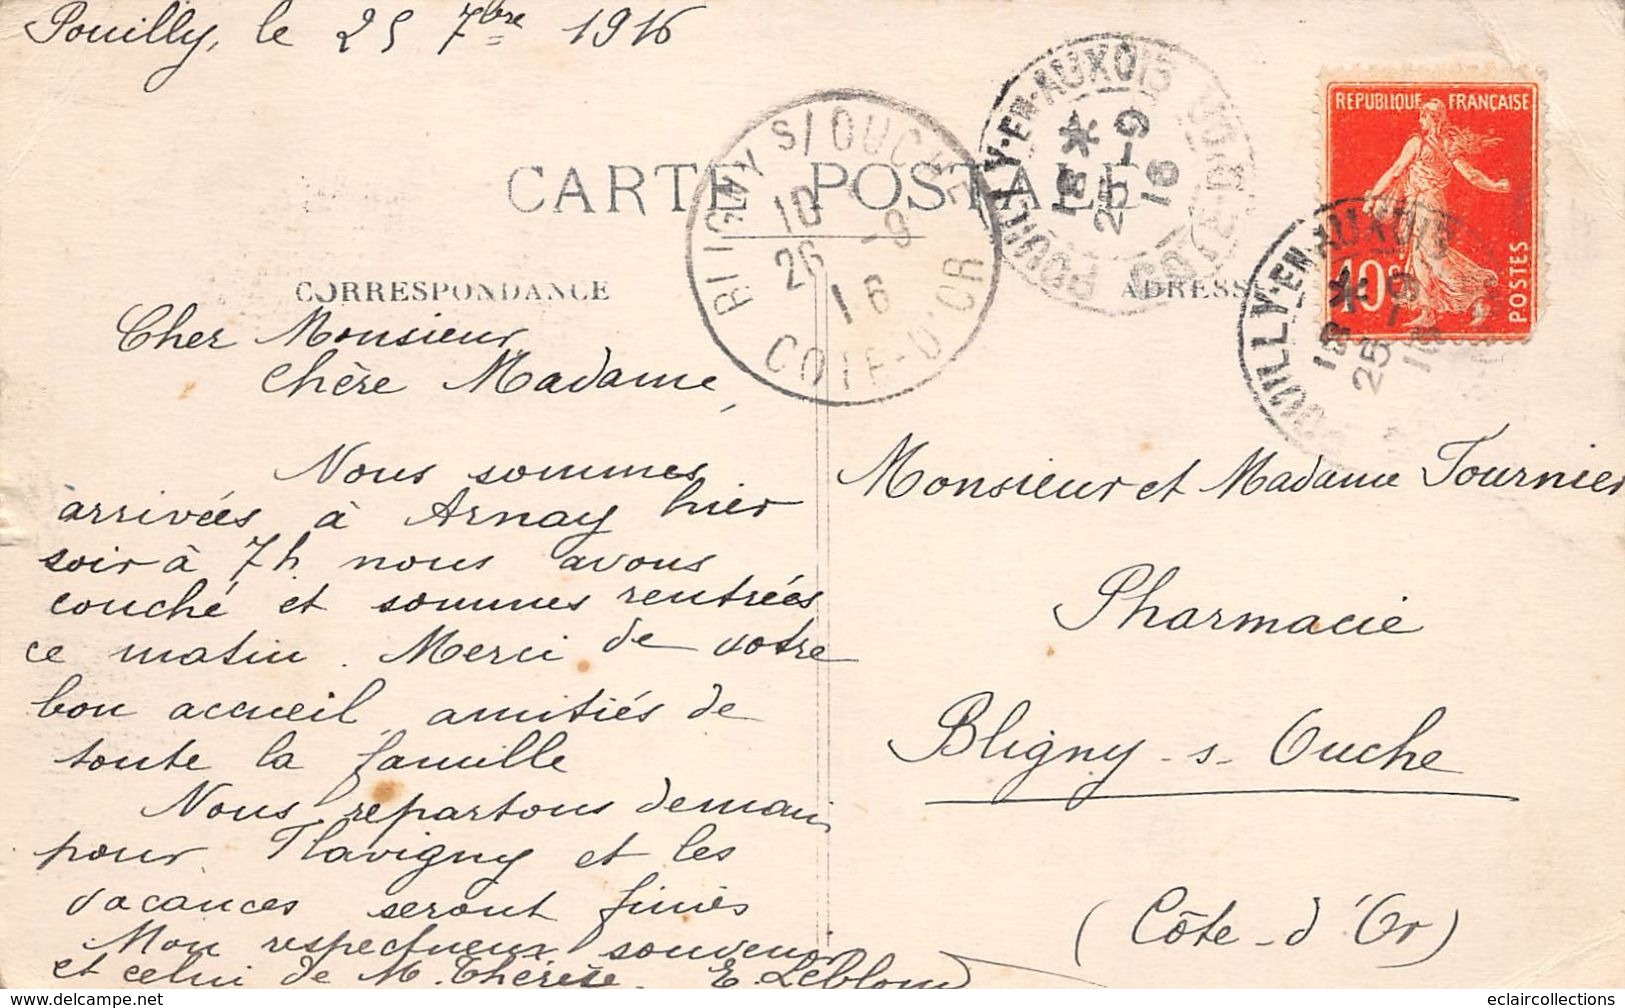 Pouilly, le 25 7bre 1916
CARTE POSTALE
CORRESPONDANCE
ADRESSE
REPUBLIQUE FRANÇAISE
10c
POSTES
BLIGNY S/ OUCHE
10
26 -9
16
COTE-D'OR
POUILLY-EN-AUXOIS
18 *
25 -9
16
COTE-D'OR
POUILLY-EN-AUXOIS
18 *
25 -9
16
Cher Monsieur
Chère Madame,
Nous sommes
arrivées à Arnay hier
soir à 7h nous avons
couché et sommes rentrées
ce matin. Merci de votre
bon accueil amitiés de
toute la famille
Nous repartons demain
pour Flavigny et les
vacances seront finies
Mon respectueux souvenir
et celui de M. Thérèse. E. Leblond
Monsieur et Madame Tournier
Pharmacie
Bligny-s-Ouche
(Côte-d'Or)
www.delcampe.net
eclaircollections